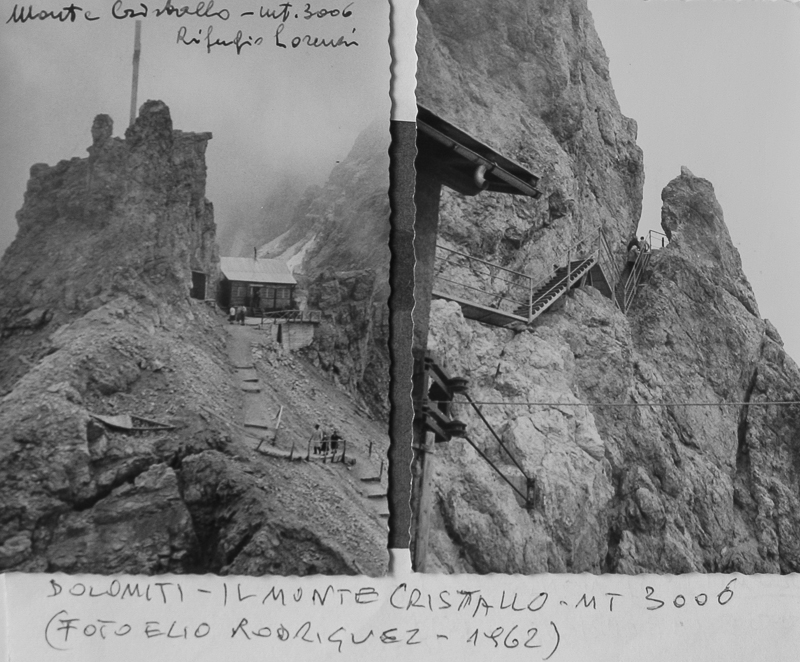 Monte Cristallo - mt. 3006
Rifugio Lorenzi
DOLOMITI - IL MONTE CRISTALLO - MT 3006
(FOTO ELIO RODRIGUEZ - 1962)